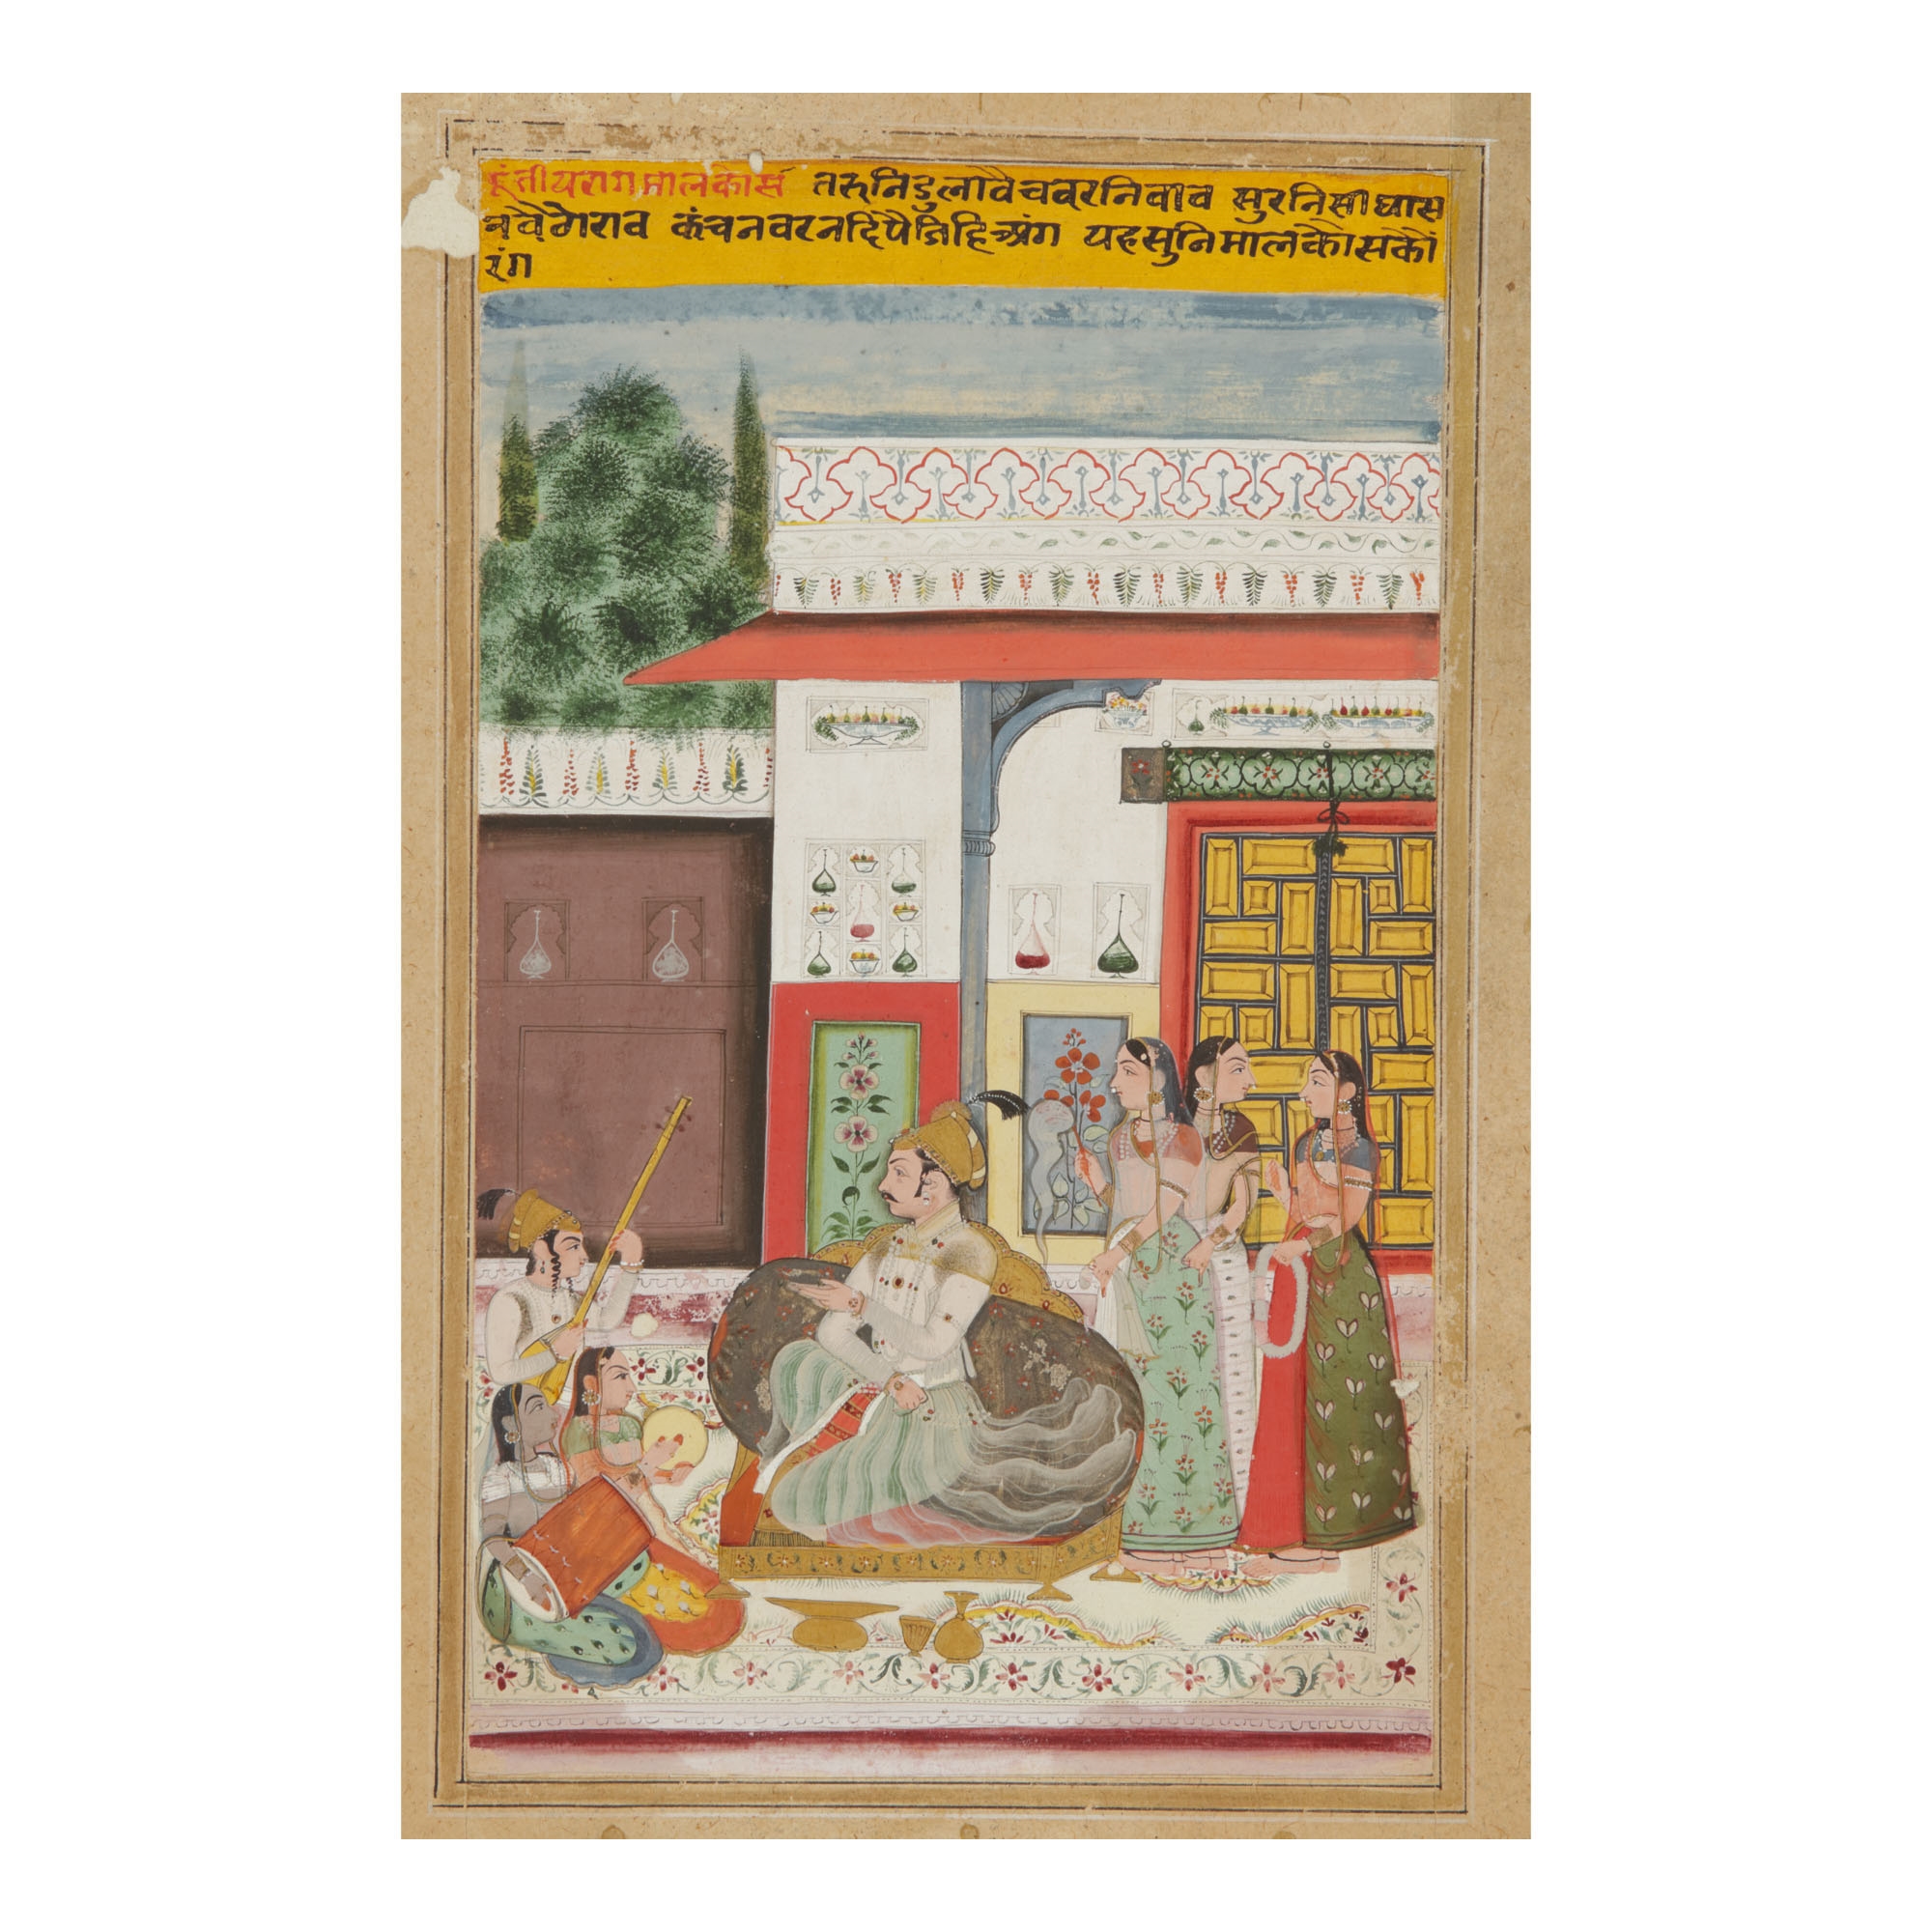 दूतीयराग मालकोस तरुनि डुलावै चवर निवाव सुरनि सीघास
न वैठे राव कंचन वरन दिपै जिहि अंग यह सुनि मालकौस कौ
रंग